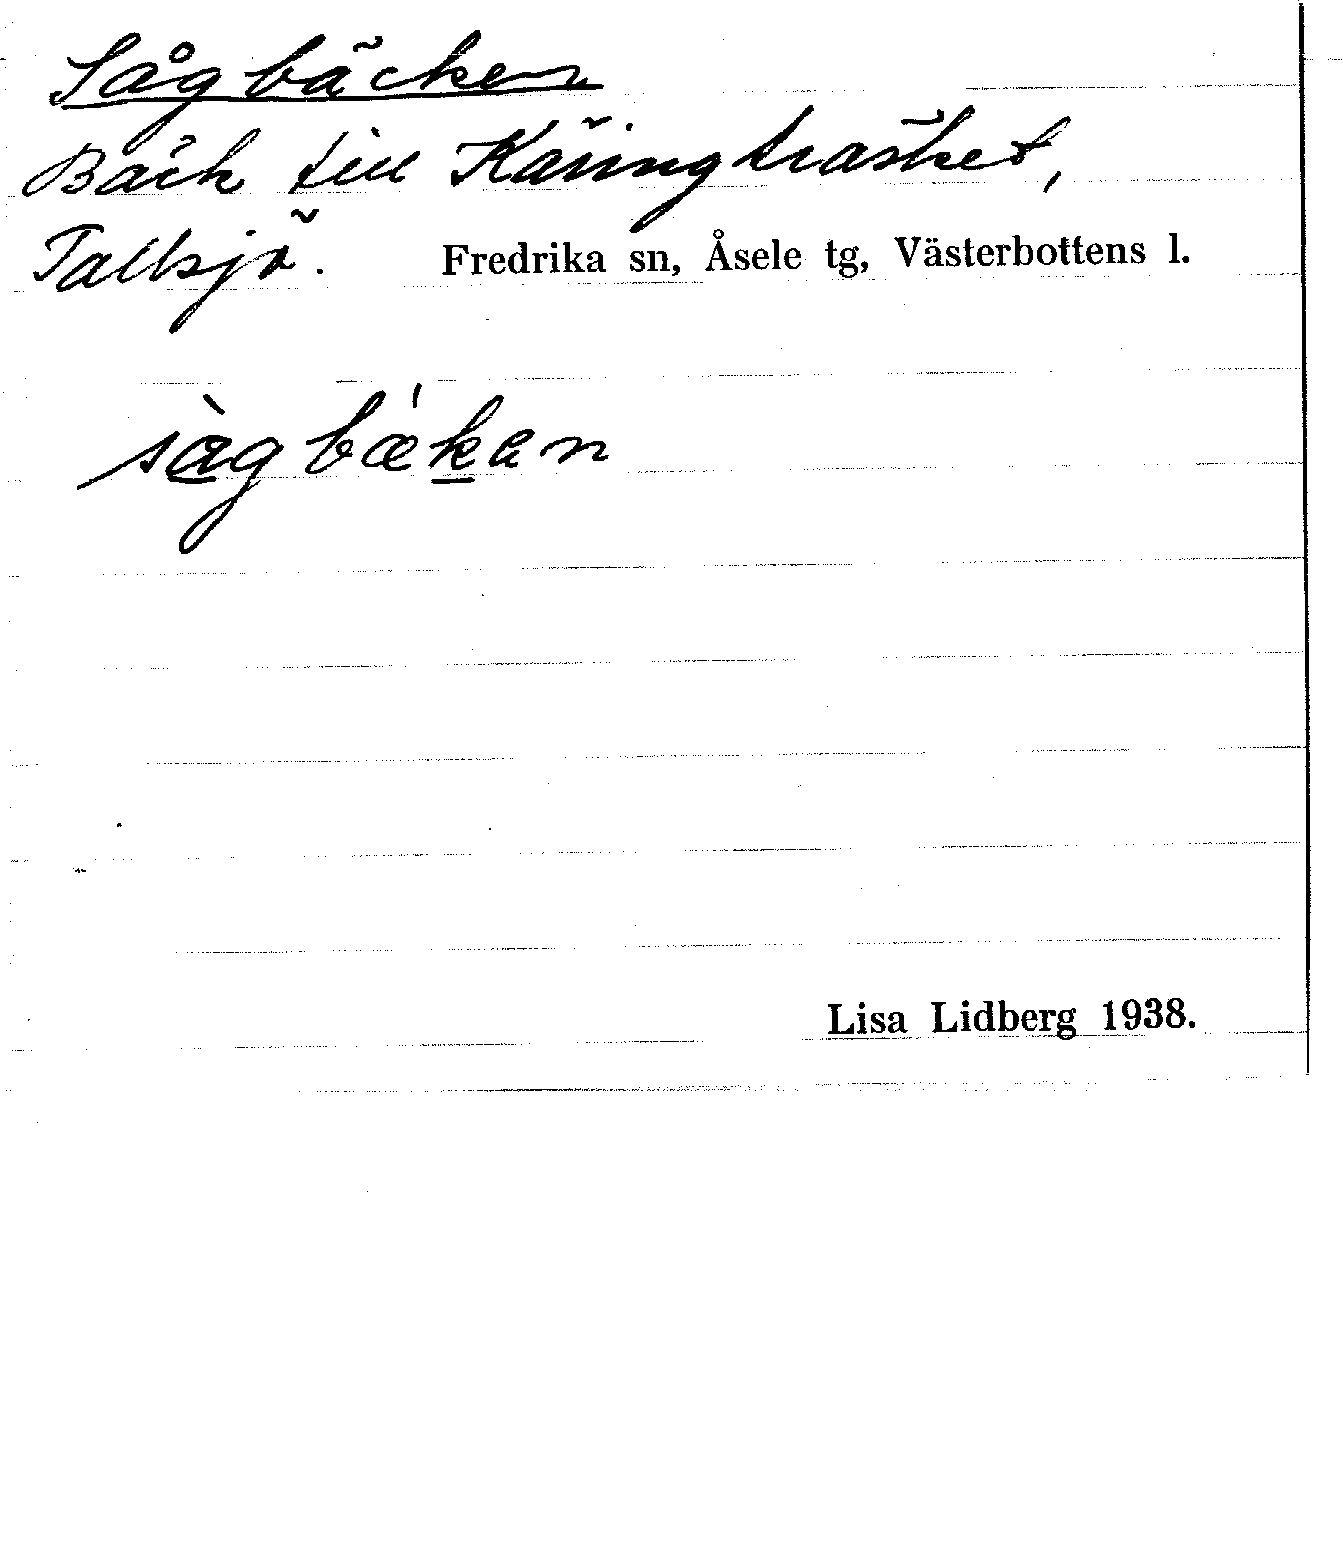 Sågbäcken
Bäck till Käringträsket,
Tallsjö. Fredrika sn, Åsele tg, Västerbottens l.
sàgbæ'kan
Lisa Lidberg 1938.